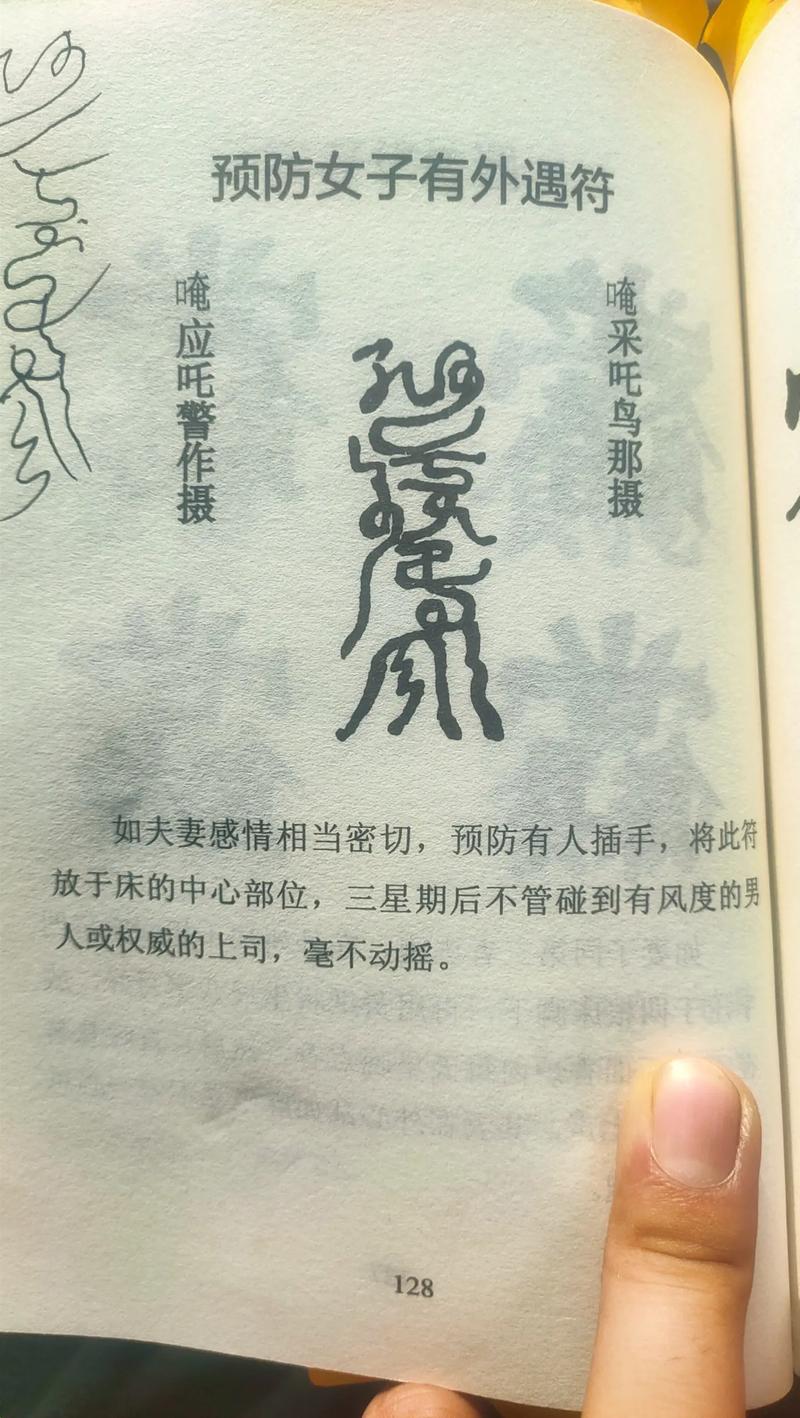 预防女子有外遇符
唵采吒鸟那摄
唵应吒警作摄
如夫妻感情相当密切，预防有人插手，将此符
放于床的中心部位，三星期后不管碰到有风度的男
人或权威的上司，毫不动摇。
128